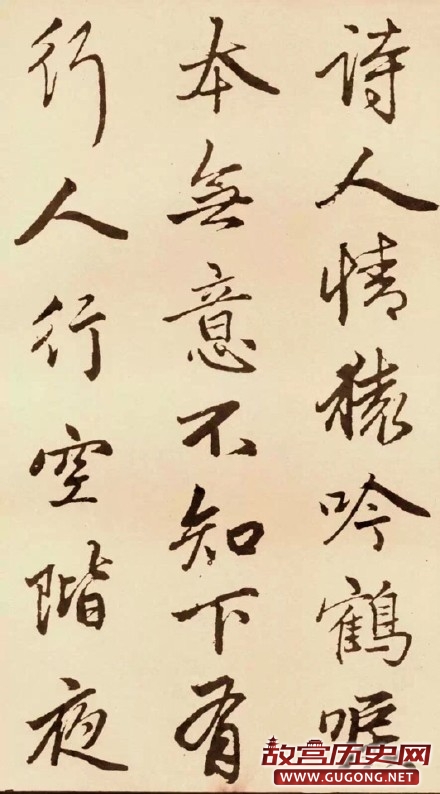 詩人情猿吟鶴唳
本無意不知下有
行人行空階夜
故宫历史网
WWW.GUGONG.NET